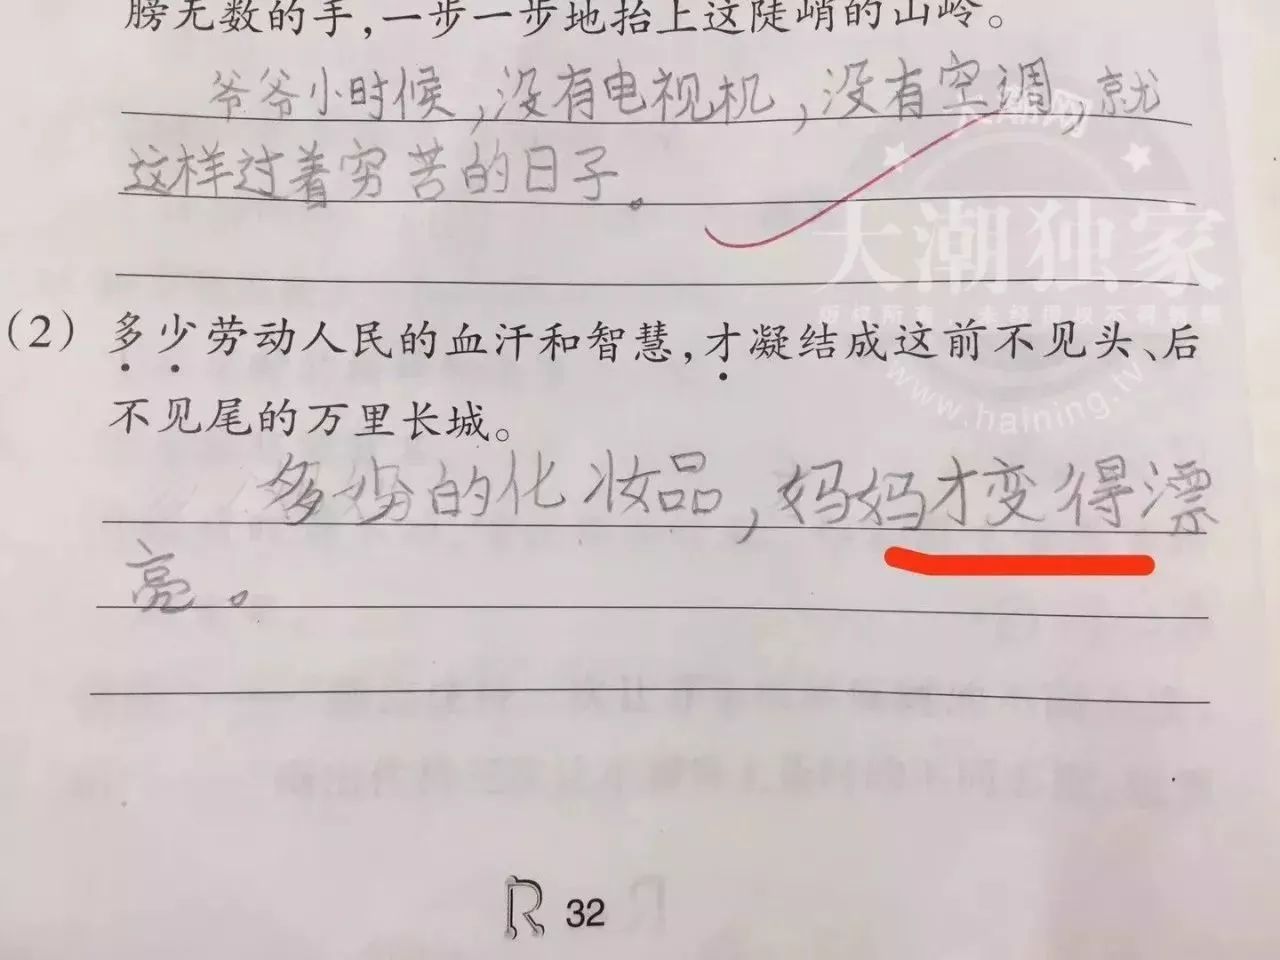 膀无数的手,一步一步地抬上这陡峭的山岭。
爷爷小时候,没有电视机,没有空调,就
这样过着穷苦的日子。
大潮网
大潮独家
版权所有,未经授权不得转载
www.haining.tv
(2) 多少劳动人民的血汗和智慧,才凝结成这前不见头、后
不见尾的万里长城。
的化妆品,妈妈才变得漂
亮。
R 32